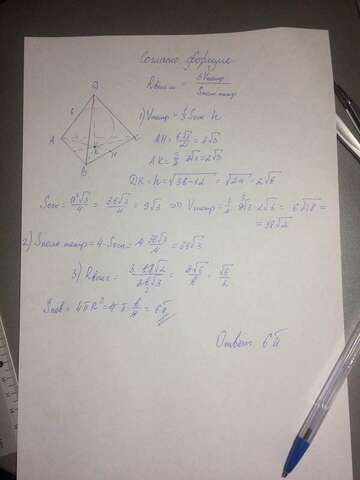 Согласно формуле
Rвпис = 3Vпир / Sполн.пир
D
6
A
K
H
B
C
1) Vпир = 1/3 Sосн h
AH = 6√3/2 = 3√3
AK = 2/3 · 3√3 = 2√3
DK = h = √36-12 = √24 = 2√6
Sосн = a²√3/4 = 36√3/4 = 9√3 => Vпир = 1/3 · 9√3 · 2√6 = 6√18 =
= 18√2
2) Sполн.пир = 4·Sосн = 4· 36√3/4 = 36√3
3) Rвпис = 3·18√2/36√3 = 3√6/6 = √6/2
Sпов = 4πR² = 4·π· 6/4 = 6π
Ответ: 6π